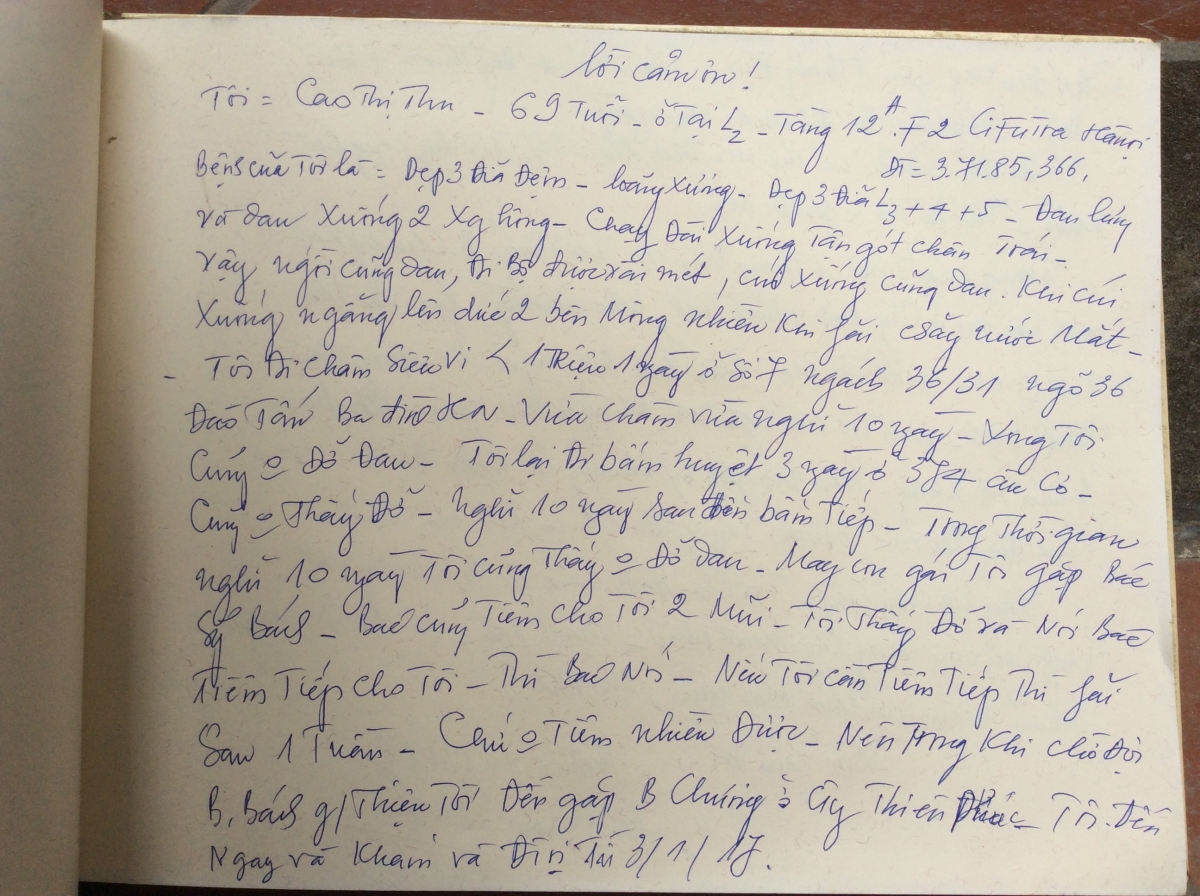 Lời cảm ơn!
Tôi = Cao Thị Thu - 69 Tuổi - ở Tại L2 - Tầng 12A. F2 Ciputra Hà nội
ĐT = 3.71.85,366,
Bệnh của Tôi là = Dẹp 3 Đĩa Đệm - loãng xương - Dẹp 3 Đĩa L3 + 4 + 5 - Đau lưng
và đau Xuống 2 Xg hông - Chạy Dài Xuống Tận gót chân Trái -
Vậy ngồi cũng đau, Đi Bộ được vài mét, cúi Xuống cũng đau. Khi cúi
Xuống ngẩng lên 2 bên Mông nhiều Khi fải chẩy nước Mắt -
- Tôi Đi Châm 1 Triệu 1 ngày ở Số 7 ngách 36/31 ngõ 36
Đào Tấn Ba đình HN - Vừa Châm vừa nghỉ 10 ngày - Xong Tôi
Cũng o Đỡ Đau - Tôi lại Đi bấm huyệt 3 ngày ở 584
Cũng o Thấy Đỡ - Nghỉ 10 ngày Sau đến bấm Tiếp - Trong Thời gian
nghỉ 10 ngày Tôi cũng Thấy o Đỡ đau - May con gái Tôi gặp Bác
Sỹ Bách - Bác cũng Tiêm cho Tôi 2 Mũi - Tôi Thấy Đỡ và Nói Bác
Tiêm Tiếp cho Tôi - Thì Bác Nói - Nếu Tôi cần Tiêm Tiếp Thì fải
Sau 1 Tuần - Chứ o Tiêm nhiều Được - Nên Trong Khi chờ Đợi
B. Bách g/Thiệu Tôi Đến gặp B Chương ở Cty Thiên Phúc - Tôi Đến
Ngay và Khám và Đ.Trị Từ 3/1/17.